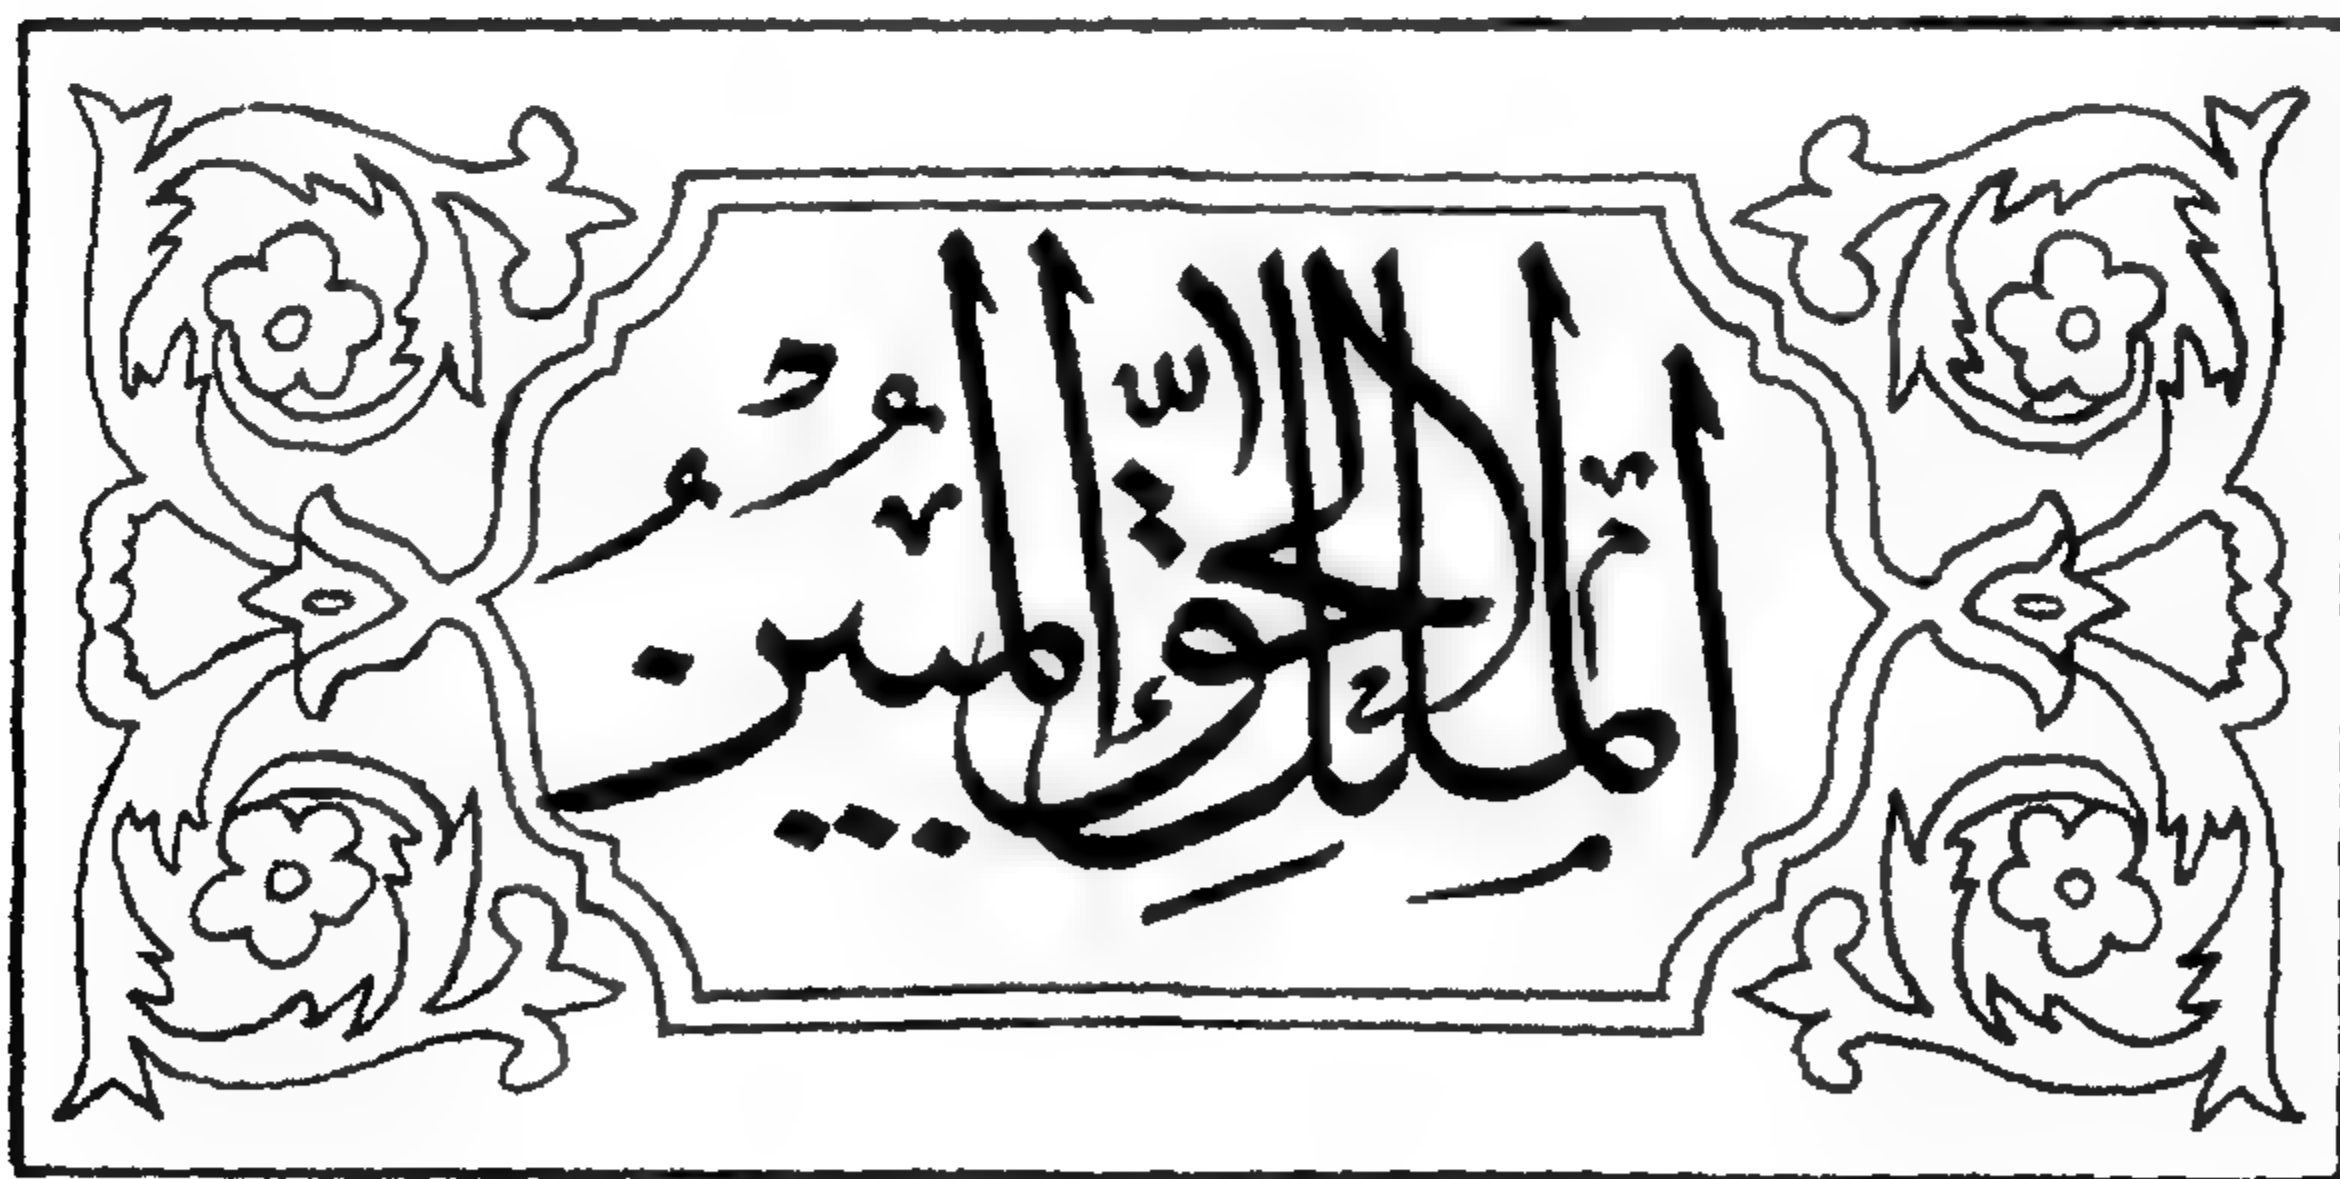 الملك الحق المبين